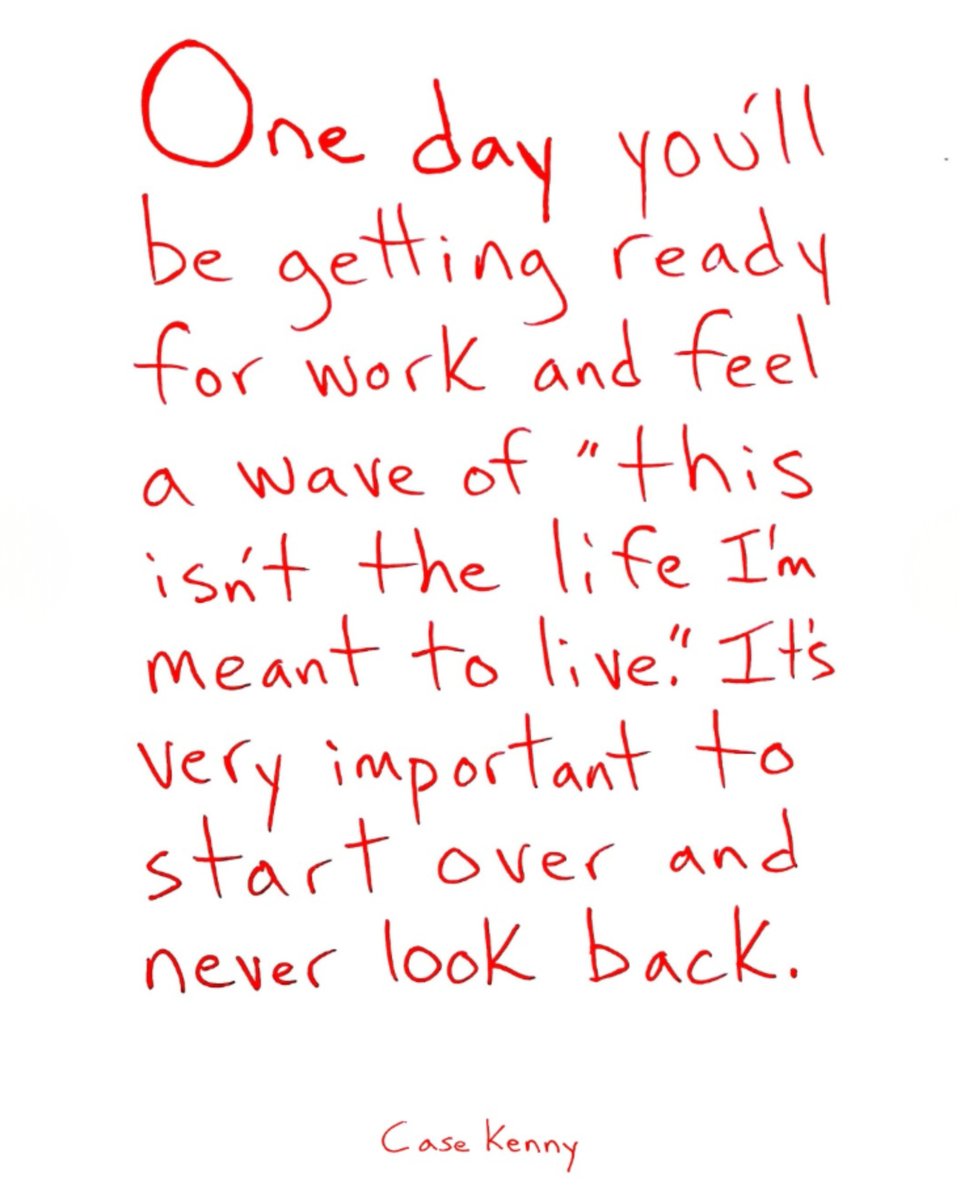 One day you'll
be getting ready
for work and feel
a wave of "this
isn't the life I'm
meant to live." It's
very important to
start over and
never look back.
Case Kenny